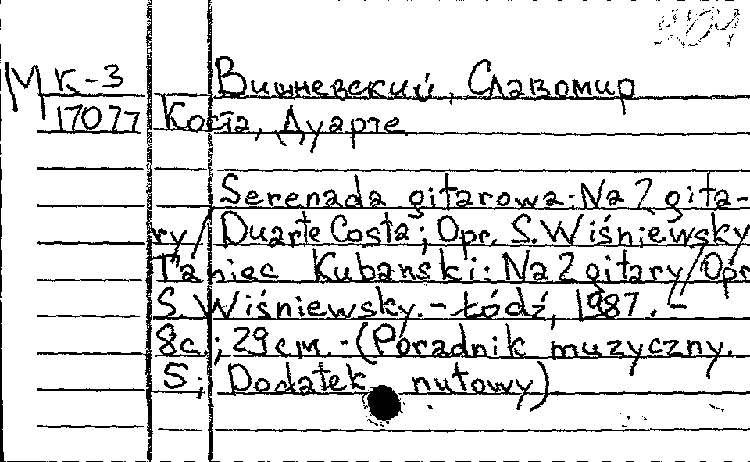 М К-3 Вишневский, Славомир
17077 Коста, Дуарте
Serenada gitarowa: Na 2 gita-
ry / Duarte Costa; Opr. S. Wiśniewsky
Taniec Kubański: Na 2 gitary / Opr
S. Wiśniewsky. - Łódź, 1987. -
8с.; 29 см. - (Poradnik muzyczny.
5; Dodatek nutowy)